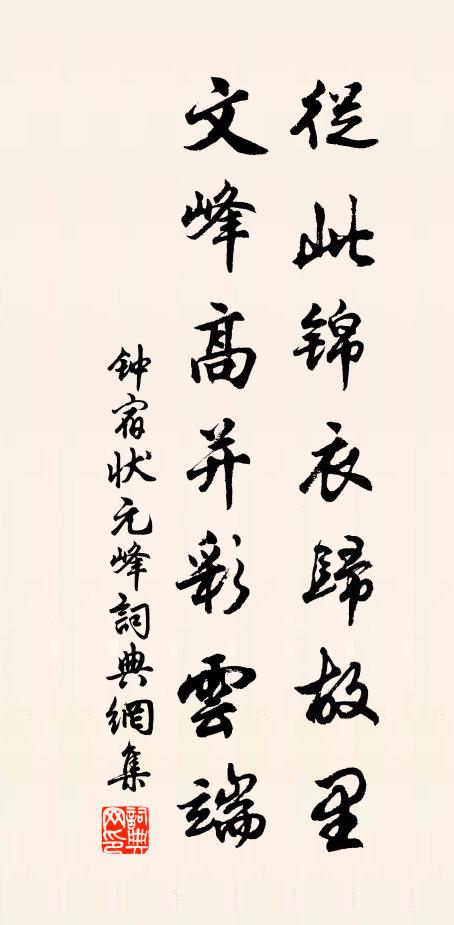 從此锦衣歸故里
文峰高并彩雲端
钟宿状元峰詞典網集
詞典网印